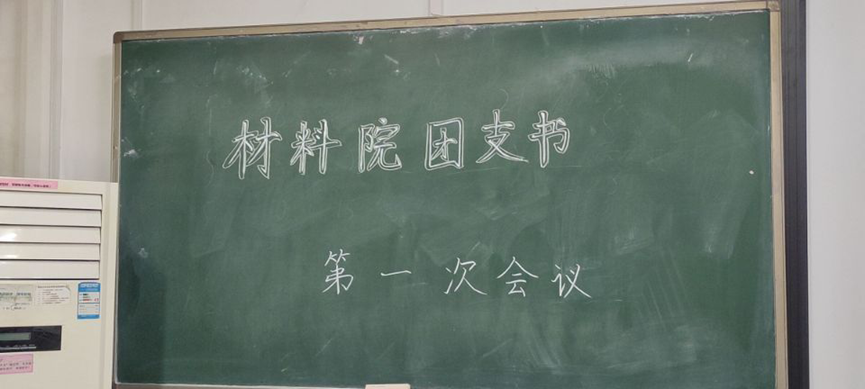 材料院团支书
第一次会议